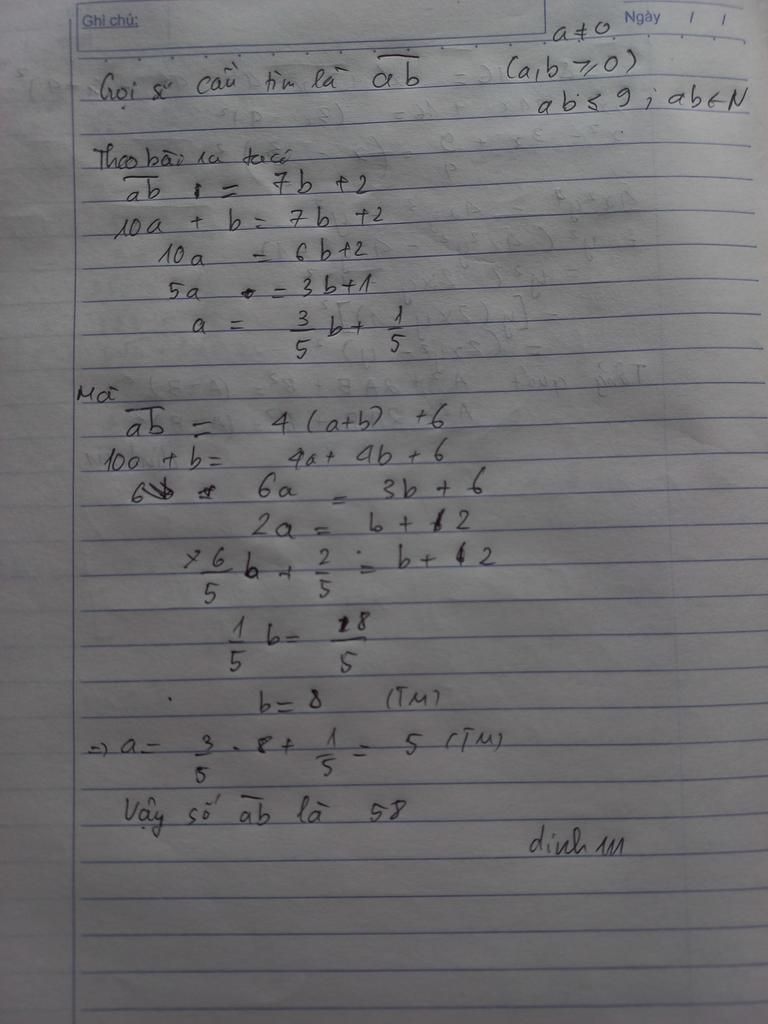 Ghi chú:
Ngày / /
a ≠ 0
Gọi số cần tìm là ab̅ (a,b ≥ 0)
ab ≤ 9 ; ab ∈ N
Theo bài ra ta có
a̅b̅ = 7b + 2
10a + b = 7b + 2
10a = 6b + 2
5a = 3b + 1
a = 3/5 b + 1/5
Mà
a̅b̅ = 4 (a+b) + 6
10a + b = 4a + 4b + 6
6a = 3b + 6
2a = b + 2
6/5 b + 2/5 = b + 2
1/5 b = 8/5
b = 8 (TM)
=> a = 3/5 . 8 + 1/5 = 5 (TM)
Vậy số a̅b̅ là 58